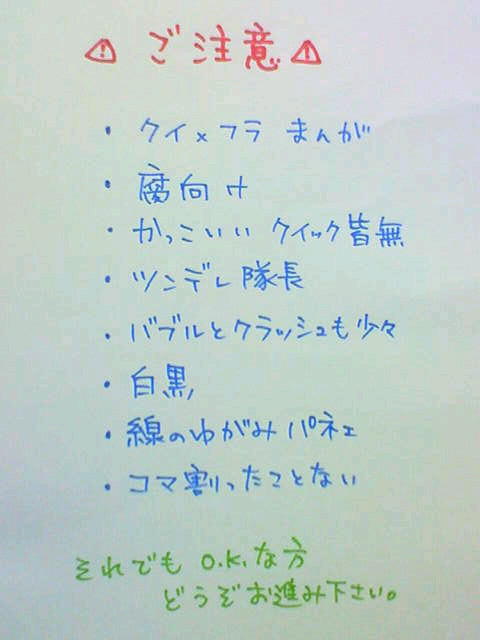 ⚠ ご注意 ⚠
・クイ×フラ まんが
・腐向け
・かっこいい クイック皆無
・ツンデレ隊長
・バブルとクラッシュも少々
・白黒
・線のゆがみパネェ
・コマ割ったことない
それでも O.K.な方
どうぞお進み下さい。